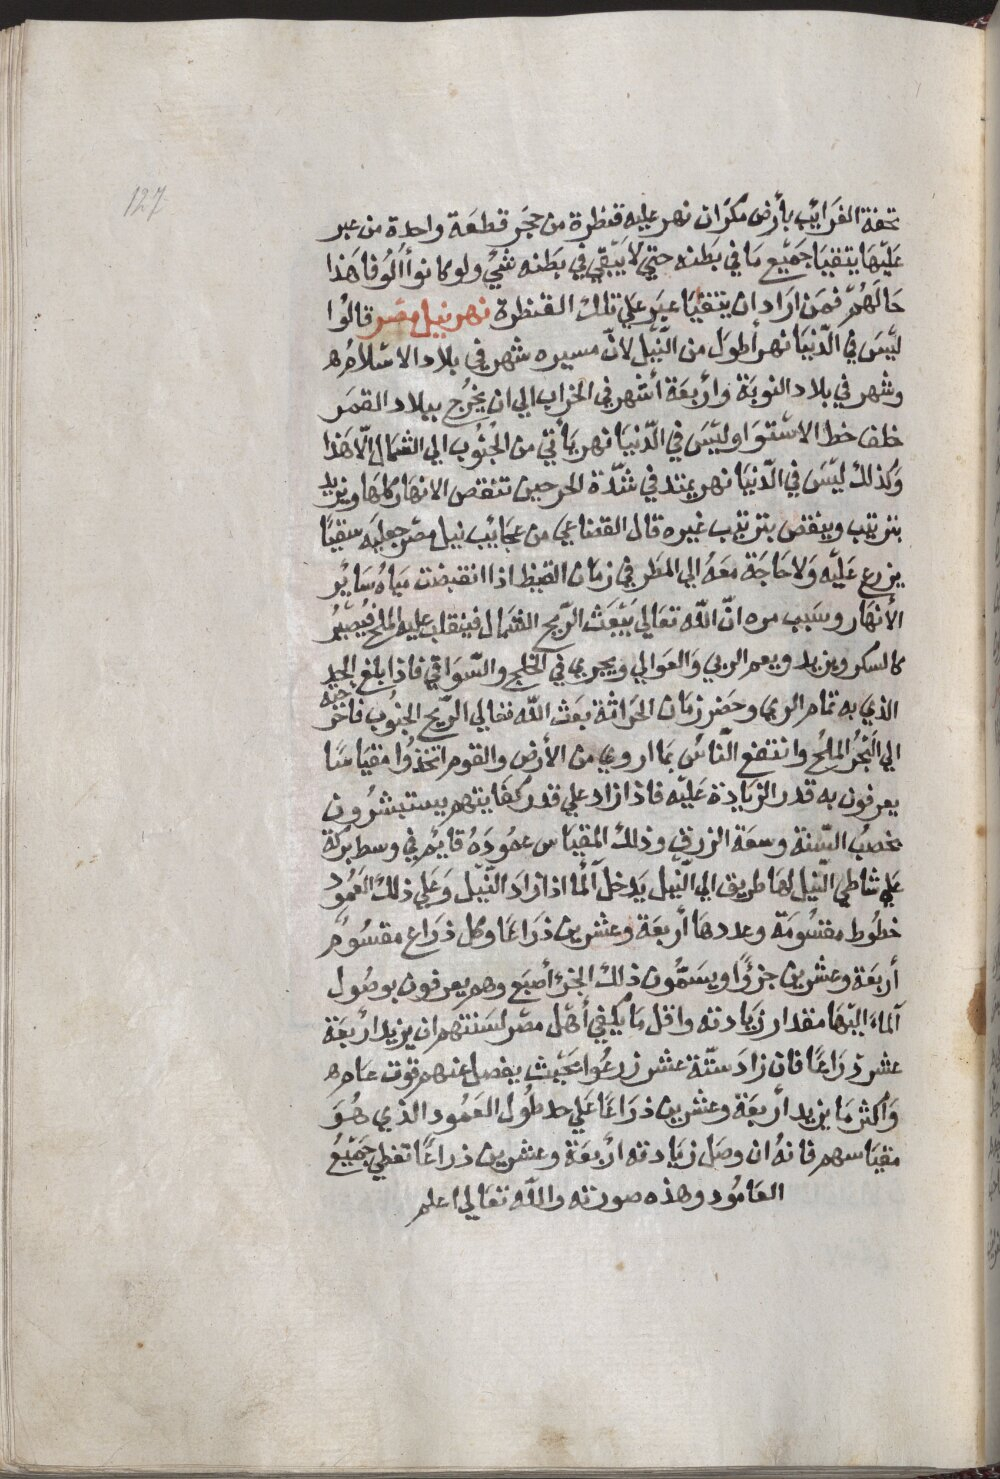 127
تحفة الغرايب بأرض مكران نهر عليه قنطرة من حجر قطعة واحدة من عبر
عليها يتقيا جميع ما في بطنه حتي لا يبقي في بطنه شي ولو كانوا ألوفا هذا
حالهم فمن اراد ان يتقيا عبر علي تلك القنطرة نهر نيل مصر قالوا
ليس في الدنيا نهر أطول من النيل لان مسيره شهر في بلاد الاسلام
وشهر في بلاد النوبة وأربعة أشهر في الخراب الي ان يخرج ببلاد القمر
خلف خط الاستوا وليس في الدنيا نهر يأتي من الجنوب الي الشمال الا هذا
وكذلك ليس في الدنيا نهر يمتد في شدة الحر حين تنقص الانهار كلها ويزيد
بترتيب وينقص بترتيب غيره قال القضاعي من عجايب نيل مصر جعله سقيا
يزرع عليه ولا حاجة معه الي المطر في زمان القيظ اذا انقبضت مياه ساير
الأنهار وسبب مره ان الله تعالي يبعث الريح الشمال فينقلب عليه الملح فيصير
كالسكر ويزيد ويعم الربي والعوالي ويجري في الخلج والسواقي فاذا بلغ الحد
الذي به تمام الري وحضر زمان الحراثة بعث الله تعالي الريح الجنوب فاخرجه
الي البحر الملح وانتفع الناس بما اروي من الأرض والقوم اتخذوا مقياسا
يعرفون به قدر الزيادة عليه فاذا زاد علي قدر كفايتهم يستبشرون
بخصب السنة وسعة الزرق وذلك المقياس عموده قايم في وسط بركة
علي شاطي النيل لها طريق الي النيل يدخل آلما اذا زاد النيل وعلي ذلك العمود
خطوط مقسومة وعددها أربعة وعشرين ذراعا وكل ذراع مقسوم
أربعة وعشرين جزؤا ويسمون ذلك الجزء أصبع وهم يعرفون بوصول
آلماء اليها مقدار زيادته واقل ما يكفي أهل مصر لسنتهم ان يزيد أربعة
عشر ذراعا فان زاد ستة عشر زرعوا بحيث يفضل عنهم قوت عام
وأكثر ما يزيد أربعة وعشرين ذراعا علي حد طول العمود الذي هو
مقياسهم فانه ان وصل زيادته أربعة وعشرين ذراعا تغطي جميع
العامود وهذه صورته والله تعالي اعلم